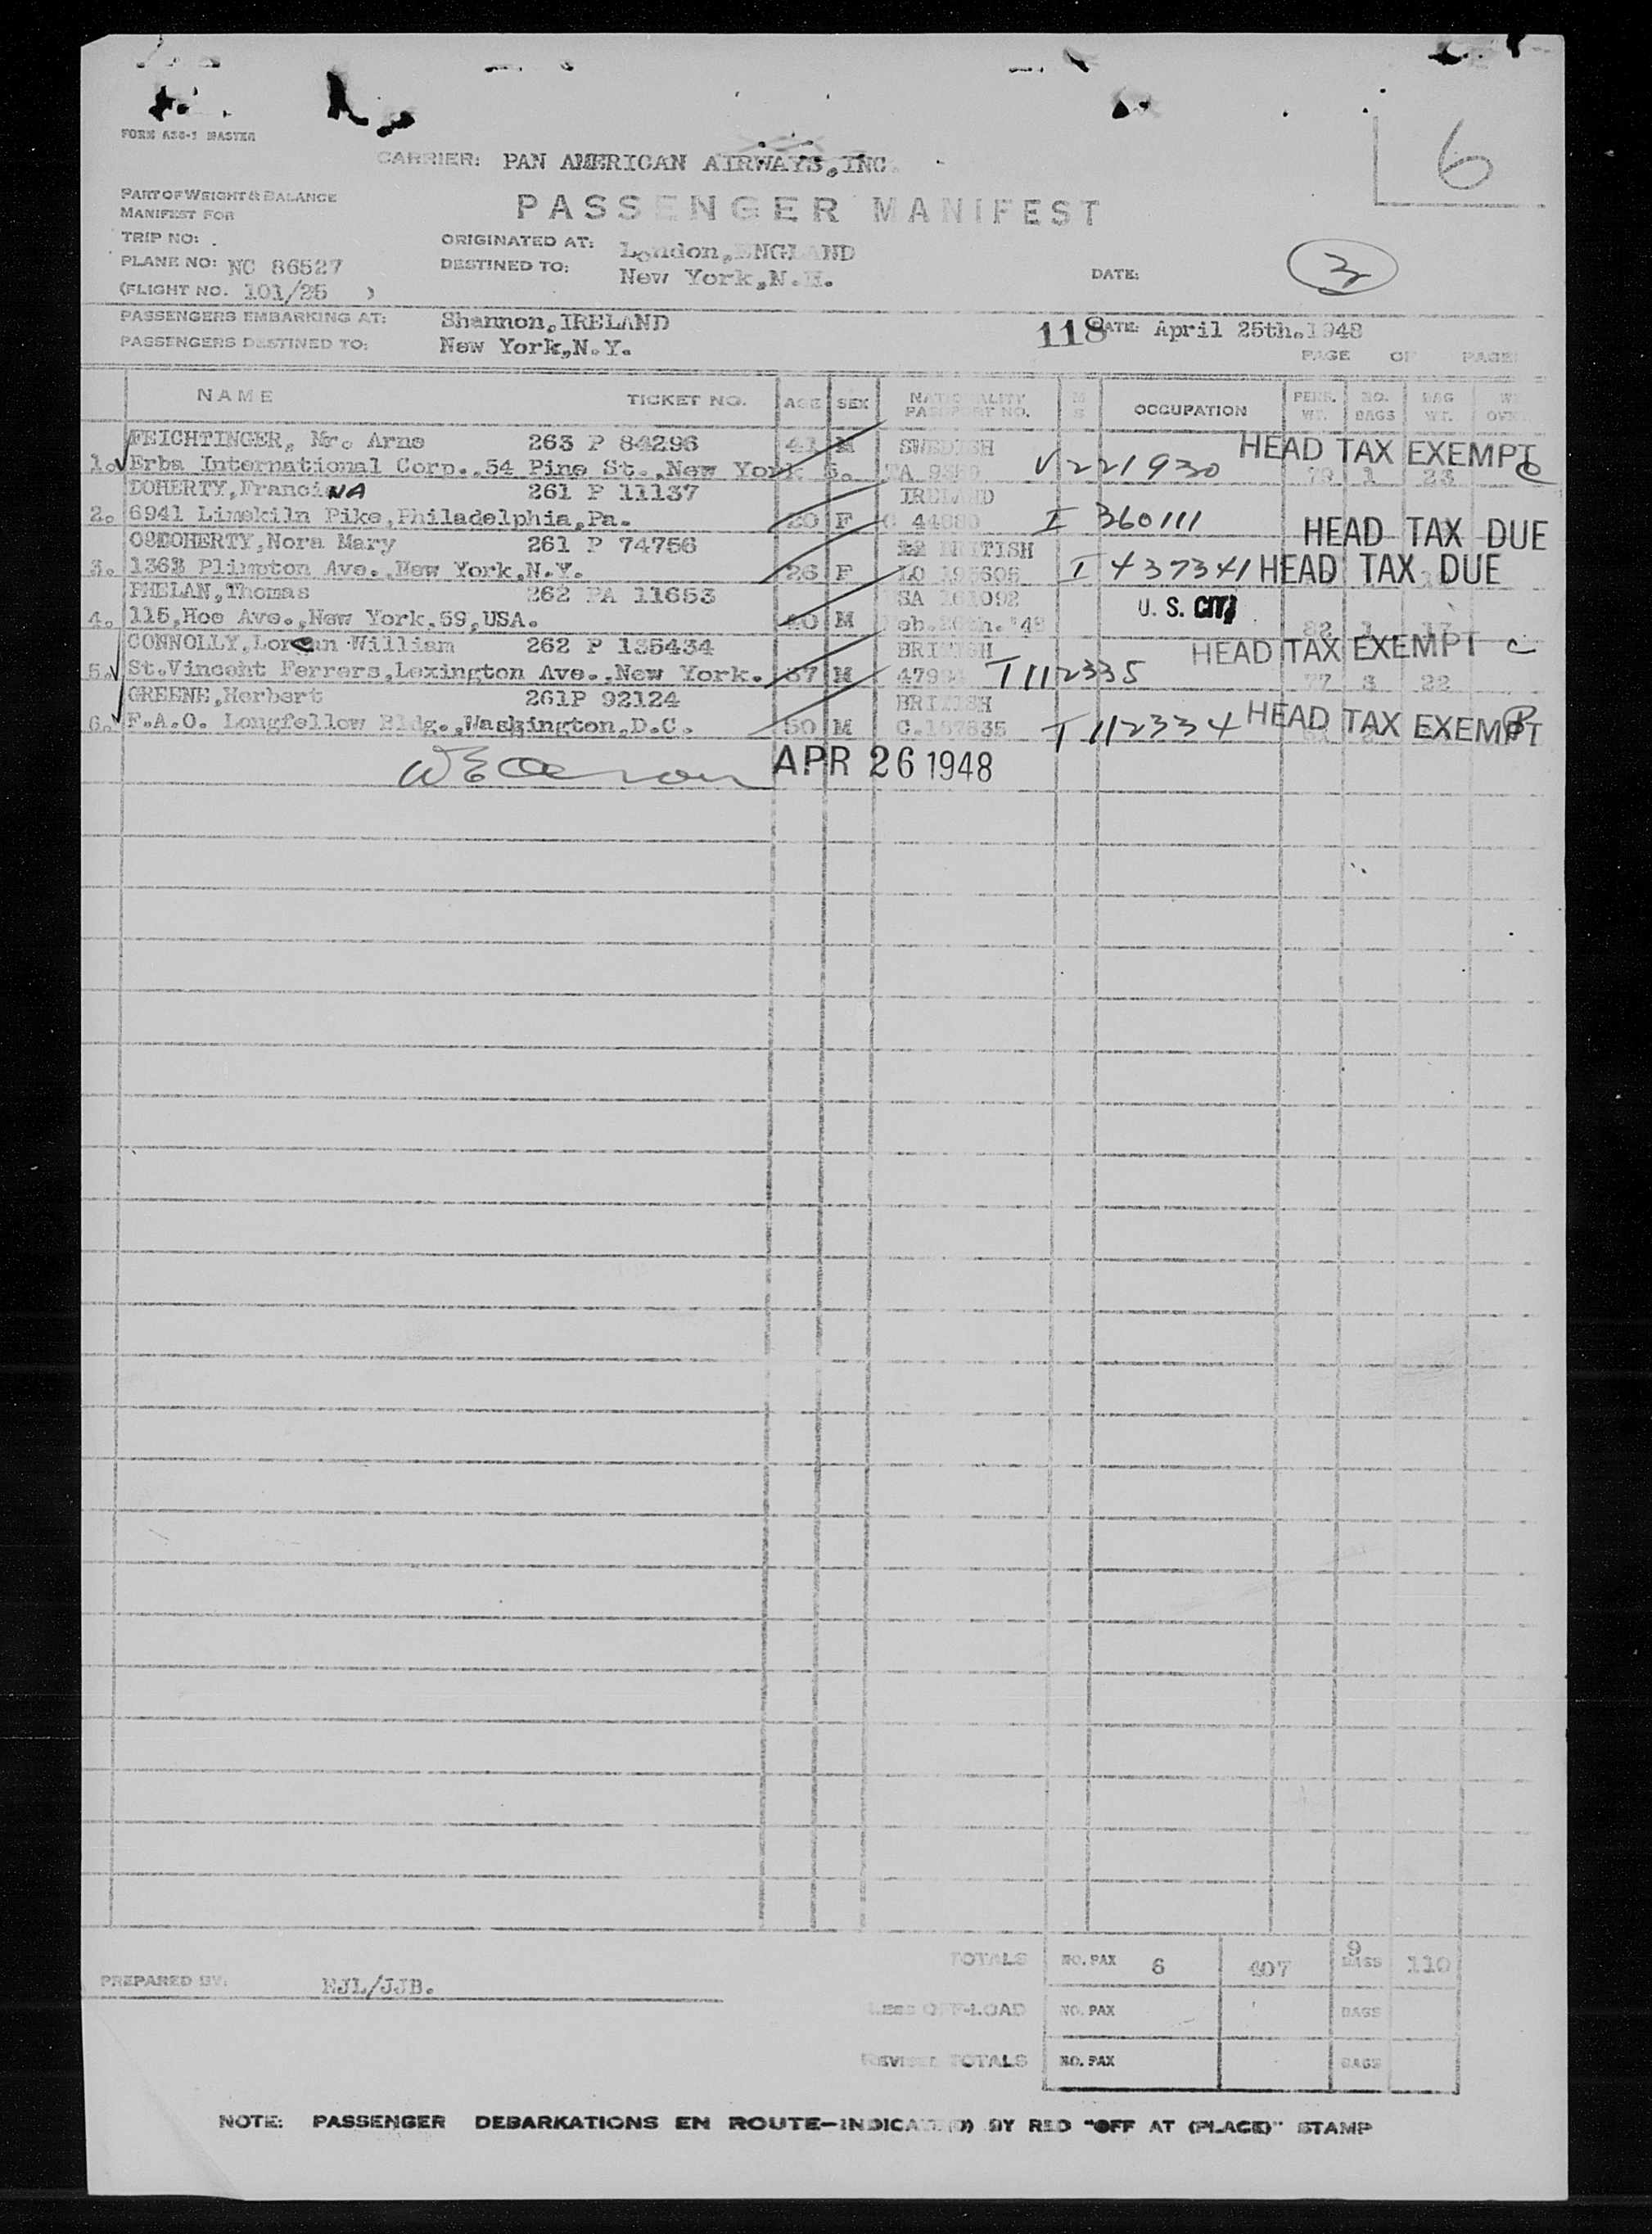 FORM A36-1 MASTER
CARRIER: PAN AMERICAN AIRWAYS, INC.
6
PART OF WEIGHT & BALANCE
PASSENGER MANIFEST
MANIFEST FOR
TRIP NO:
ORIGINATED AT: London, ENGLAND
PLANE NO: NC 86527
DESTINED TO: New York, N.
DATE:
(FLIGHT NO. 101/25 )
PASSENGERS EMBARKING AT: Shannon, IRELAND
118 DATE: April 25th. 1948
PASSENGERS DESTINED TO: New York, N.Y.
PAGE OF PAGES
NAME TICKET NO. AGE SEX NATIONALITY PASSPORT NO. M S OCCUPATION PERS. WT. NO. BAGS BAG WT.
FEICHTINGER, Mr. Arne 263 P 84296 41 M SWEDISH HEAD TAX EXEMPT
1. Erba International Corp., 54 Pine St., New York 5. V 221930 1 23
DOHERTY, FranciNA 261 P 11137 IRELAND
2. 6941 Limekiln Pike, Philadelphia, Pa. 20 F I 360111 HEAD TAX DUE
DOHERTY, Nora Mary 261 P 74756 BRITISH
3. Plimpton Ave., New York, N.Y. 26 F I 437341 HEAD TAX DUE
PHELAN, Thomas 262 PA 11653 USA 161092
4. 115, Hoe Ave., New York, 59, USA. M U. S. CIT
CONNOLLY, William 262 P 135434 BRITISH HEAD TAX EXEMPT C
5. St. Vincent Ferrers, Lexington Ave., New York. 37 M T 112335 77 3 22
GREENE, Herbert 261P 92124 BRITISH
6. F.A.O. Longfellow Bldg., Washington, D.C. 50 M T 112334 HEAD TAX EXEMPT
APR 26 1948
TOTALS NO. PAX 6 407 9 BAGS 110
PREPARED BY: EJL/JJB.
LESS OFF-LOAD NO. PAX BAGS
REVISED TOTALS NO. PAX BAGS
NOTE: PASSENGER DEBARKATIONS EN ROUTE-INDICATE(D) BY RED "OFF AT (PLACE)" STAMP